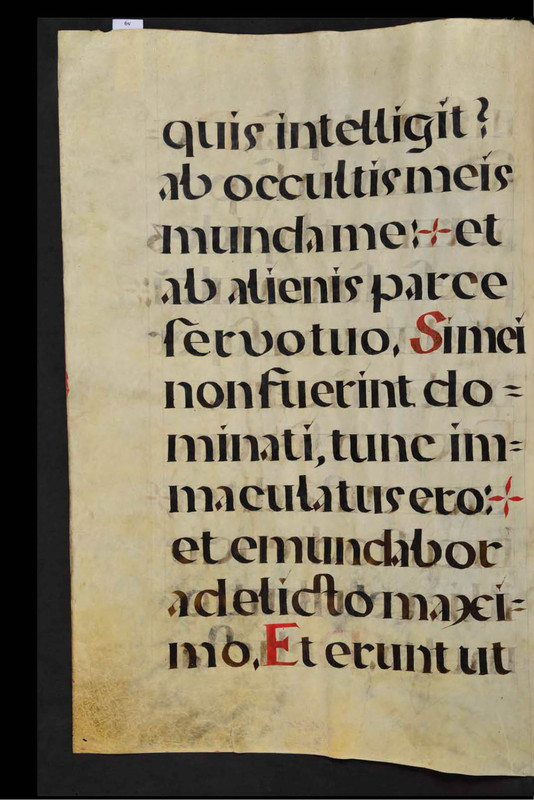 quis intelligit?
ab occultis meis
munda me:+ et
ab alienis parce
servo tuo, Si mei
non fuerint do=
minati, tunc im=
maculatus ero:+
et emundabor
a delicto maxi=
mo. Et erunt ut